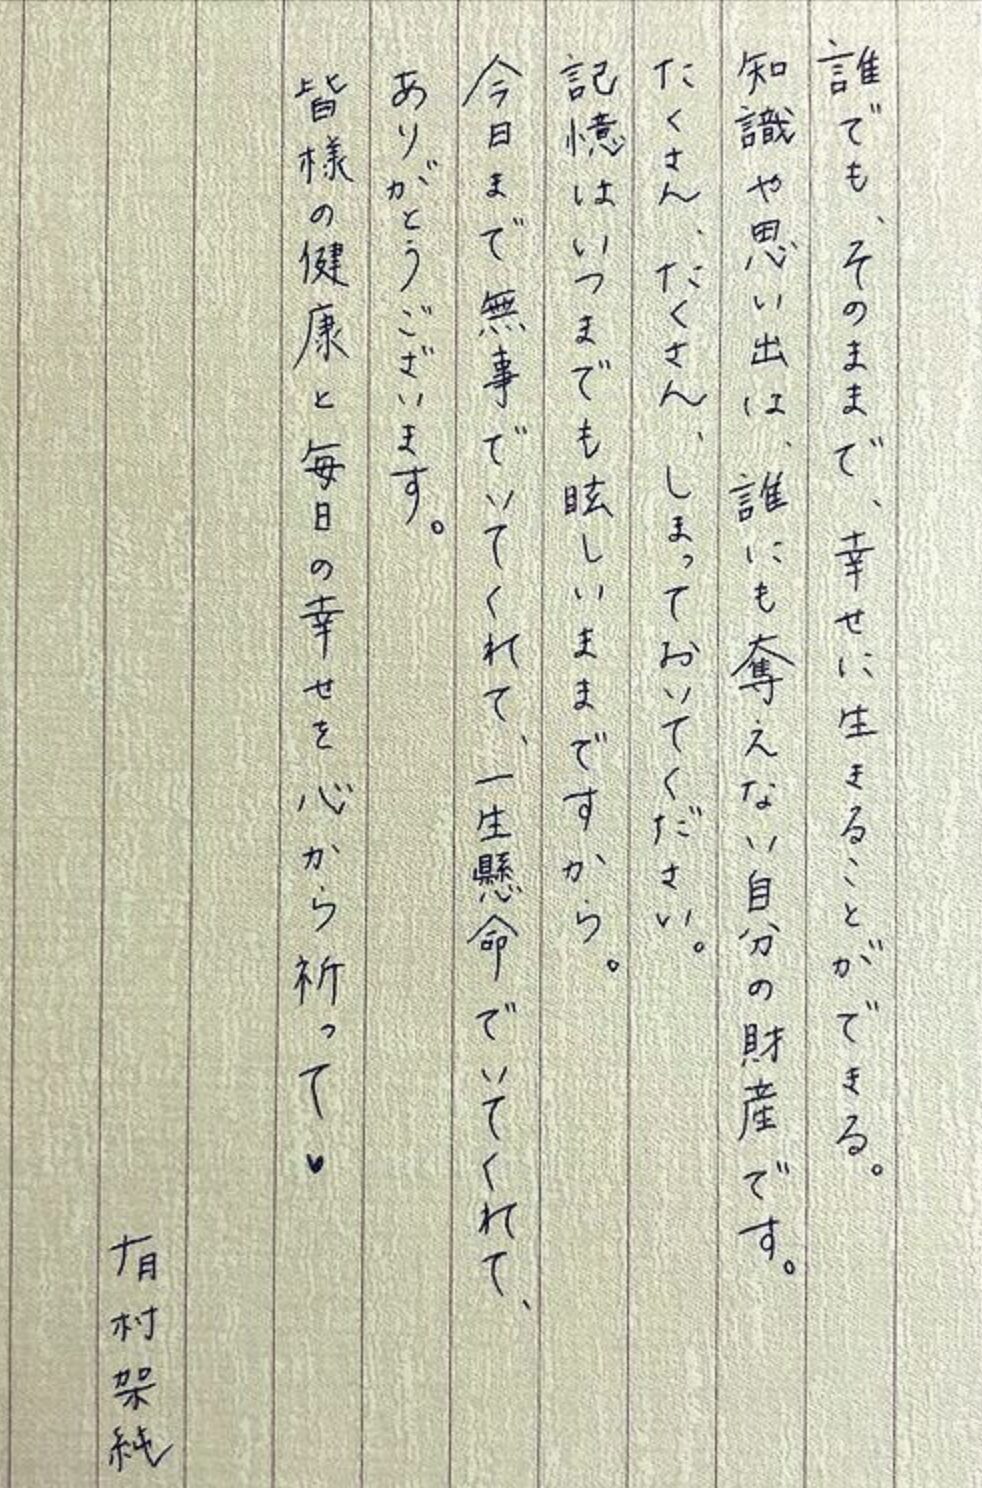 誰でも、そのままで、幸せに生きることができる。
知識や思い出は、誰にも奪えない自分の財産です。
たくさん、たくさん、しまっておいてください。
記憶はいつまでも眩しいままですから。
今日まで無事でいてくれて、一生懸命でいてくれて、
ありがとうございます。
皆様の健康と毎日の幸せを心から祈って♥
有村架純